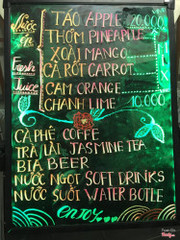 Nước ép TÁO APPLE 20.000
THƠM PINEAPPLE
XOÀI MANGO
Fresh CÀ RỐT CARROT
Juice CAM ORANGE
CHANH LIME 10.000
MIX
CÀ PHÊ COFFE
TRÀ LÀI JASMINE TEA
BIA BEER
NƯỚC NGỌT SOFT DRINKS
NƯỚC SUỐI WATER BOTLE
enjoy...